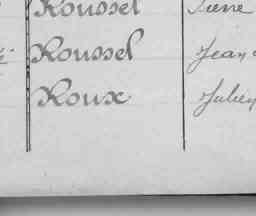 Roussel Pierre
Roussel Jean
Roux Julien